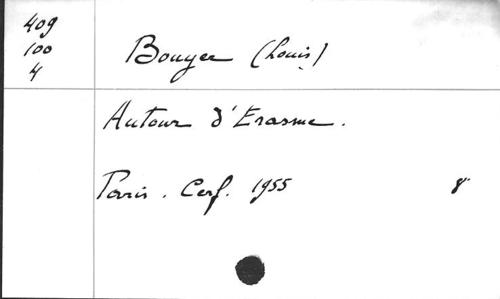 409
100
4
Bouyer (Louis)
Autour d'Erasme.
Paris. Cerf. 1955 8°